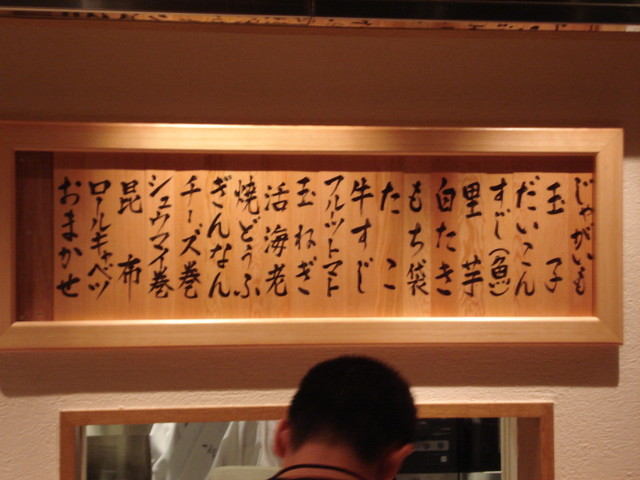 じゃがいも
玉子
だいこん
すじ(魚)
里芋
白たき
もち袋
たこ
牛すじ
フルーツトマト
玉ねぎ
活海老
焼どうふ
ぎんなん
チーズ巻
シュウマイ巻
昆布
ロールキャベツ
おまかせ